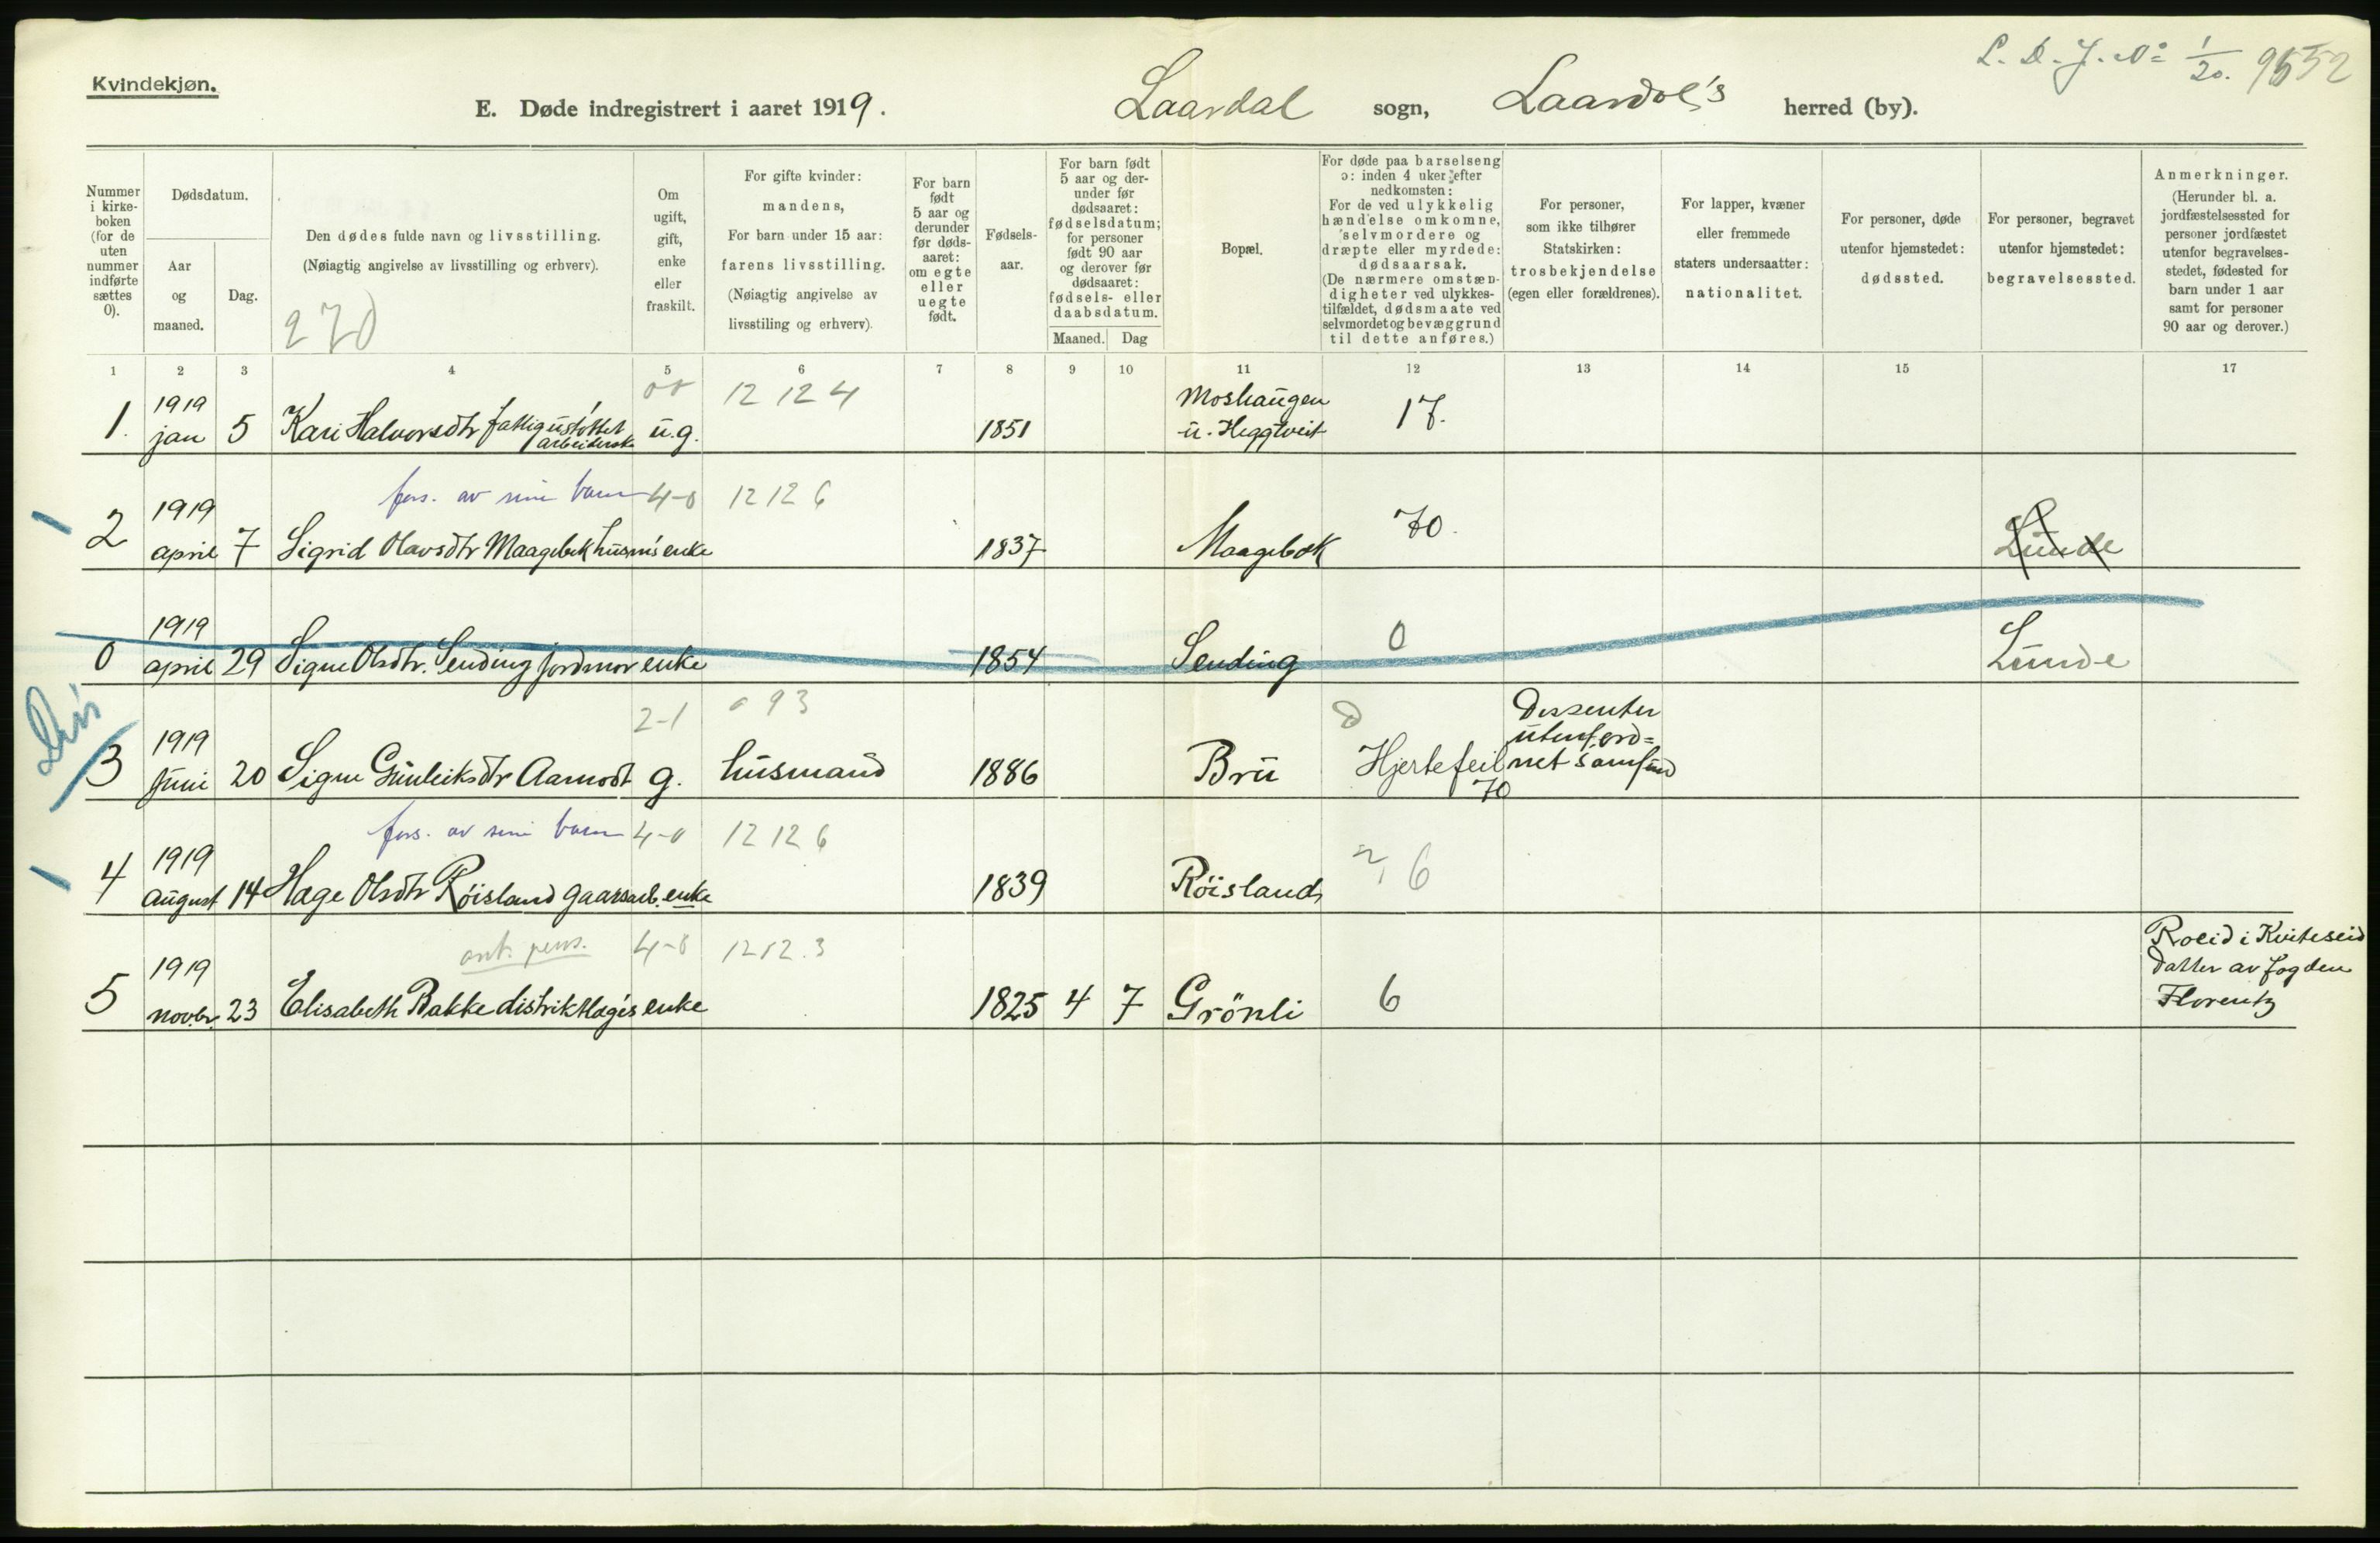 Kvindekjøn.
E. Døde indregistrert i aaret 1919.
Laardal sogn, Laardal's herred (by).
L. D. J. No 1/20. 9552
Nummer i kirkeboken (for de uten nummer indførte sættes 0).
Dødsdatum.
Aar og maaned.
Dag.
Den dødes fulde navn og livsstilling.
(Nøiagtig angivelse av livsstilling og erhverv).
270
Om ugift, gift, enke eller fraskilt.
For gifte kvinder: mandens,
For barn under 15 aar: farens livsstilling.
(Nøiagtig angivelse av livsstiling og erhverv).
For barn født 5 aar og derunder før dødsaaret: om egte eller uegte født.
Fødselsaar.
For barn født 5 aar og derunder før dødsaaret: fødselsdatum; for personer født 90 aar og derover før dødsaaret: fødsels- eller daabsdatum.
Maaned. Dag
Bopæl.
For døde paa barselseng ɔ: inden 4 uker efter nedkomsten:
For de ved ulykkelig hændelse omkomne, selvmordere og dræpte eller myrdede: dødsaarsak.
(De nærmere omstændigheter ved ulykkestilfældet, dødsmaate ved selvmordet og bevæggrund til dette anføres.)
For personer, som ikke tilhører Statskirken: trosbekjendelse (egen eller forældrenes).
For lapper, kvæner eller fremmede staters undersaatter: nationalitet.
For personer, døde utenfor hjemstedet: dødssted.
For personer, begravet utenfor hjemstedet: begravelsessted.
Anmerkninger.
(Herunder bl. a. jordfæstelsessted for personer jordfæstet utenfor begravelsesstedet, fødested for barn under 1 aar samt for personer 90 aar og derover.)
1 2 3 4 5 6 7 8 9 10 11 12 13 14 15 17
12 12 4
1. 1919 jan 5 Kari Halvorsdtr fattigustøttet arbeiderske u.g. 1851 Moshaugen u. Heggtveit 17.
fors. av sine barn 4-0 12 12 6
2 1919 april 7 Sigrid Olavsdtr Maagebæk husm's enke 1837 Maagebæk 70. Lunde
0 1919 april 29 Signe Olsdtr. Sending jordmor enke 1854 Sending 0 Lunde
Dis
2-1 093
3 1919 juni 20 Signe Gunleiksdtr Aamodt g. husmand 1886 Bru Hjertefeil 70 Dissenter utenford= net samfund
fors. av sine barn 4-0 12 12 6
4 1919 august 14 Hage Olsdtr Røisland gaarsarb. enke 1839 Røisland 6
4-0 12 12.3
5 1919 novbr. 23 Elisabeth Bakke distriktlæge's enke 1825 4 7 Grönli 6
Roeid i Kviteseid
datter av fogden
Florentz